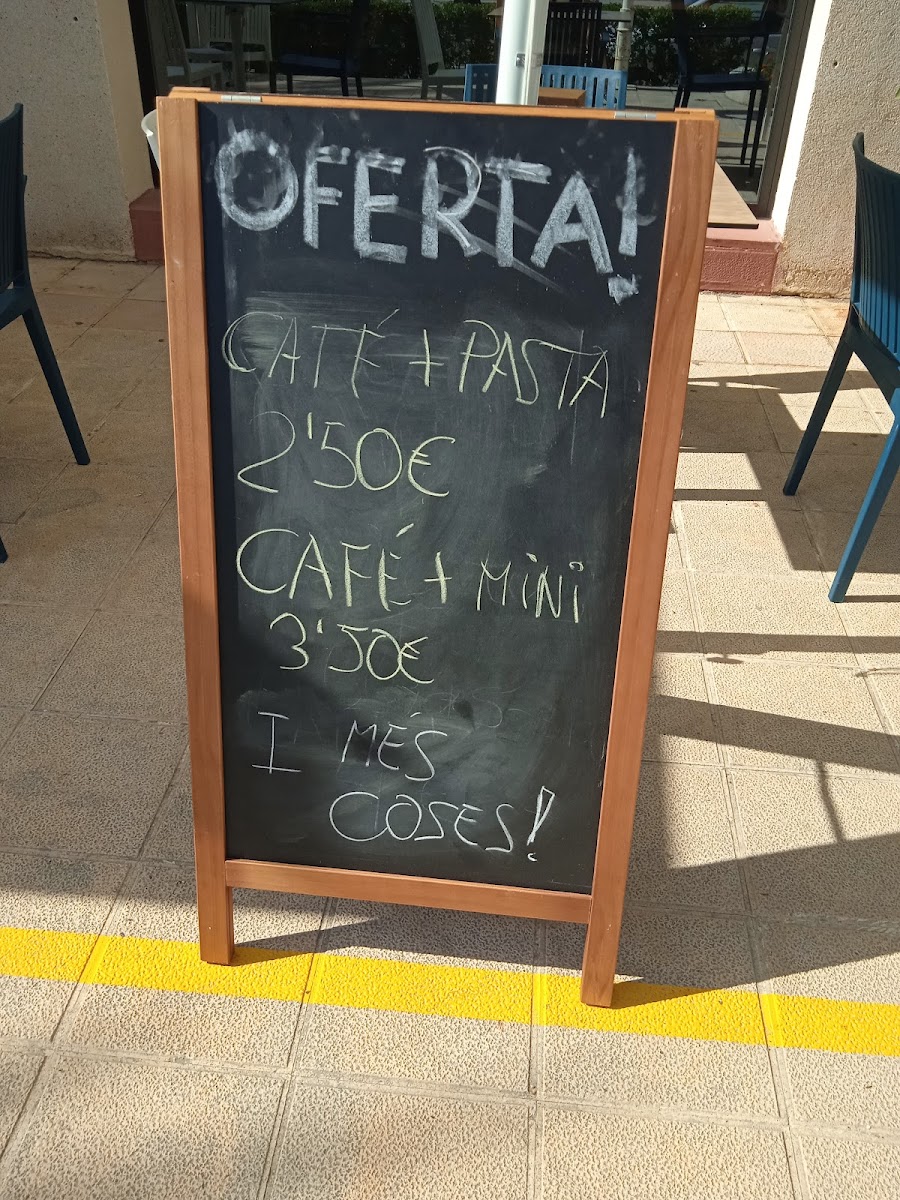 OFERTA!
CAFÉ + PASTA
2'50€
CAFÉ + MINI
3'50€
I MÉS
COSES!